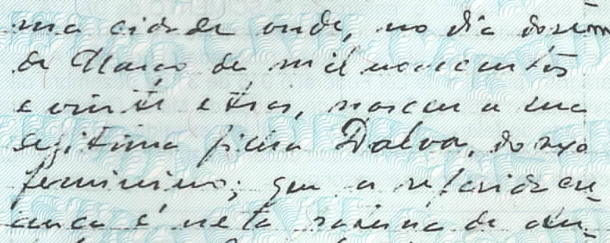 ma cidade onde, no dia
de Março de mil novecentos
e vinte e tres, nasceu a sua
legitima filha Dalva, do sexo
feminino; que a referida cri-
ança é neta de An-